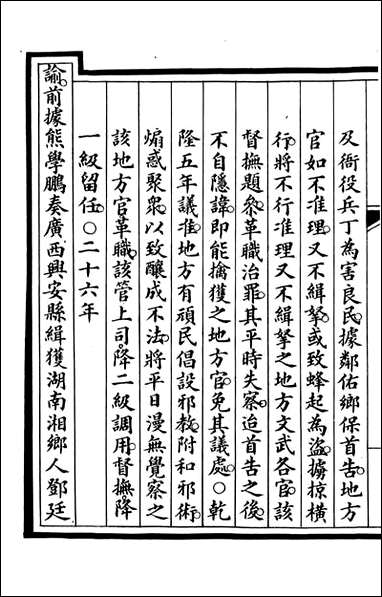 及衙役兵丁為害良民據鄰佑鄉保首吿地方
官如不准理又不緝拏或致蜂起為盜擄掠橫
行將不行准理又不緝拏之地方文武各官該
督撫題叅革職治罪其平時失察迨首吿之後
不自隱諱即能擒獲之地方官免其議處○乾
隆五年議准地方有頑民倡設邪教附和邪術
煽惑聚衆以致釀成不法將平日漫無覺察之
該地方官革職該管上司降二級調用督撫降
一級留任○二十六年
諭前據熊學鵬奏廣西興安縣緝獲湖南湘鄉人鄧廷